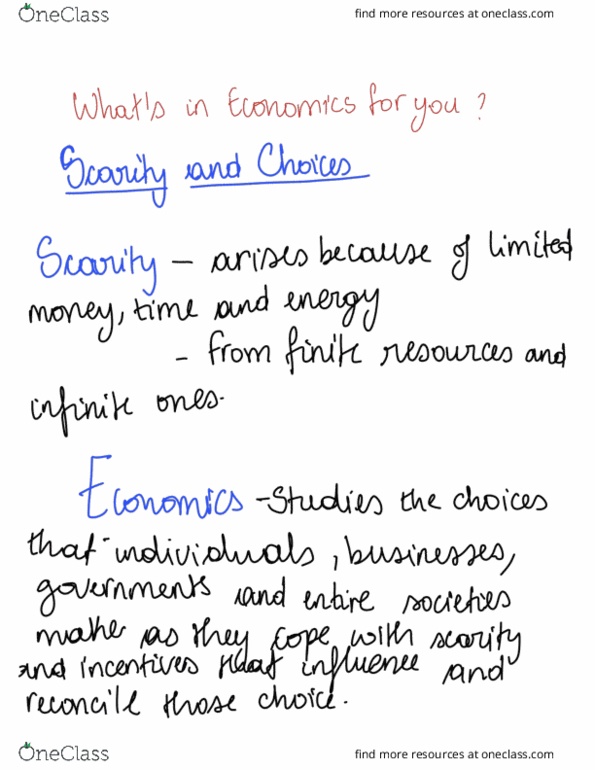 OneClass
find more resources at oneclass.com
What's in Economics for you?
Scarity and Choices
Scarity - arises because of limited
money, time and energy
- from finite resources and
infinite ones.
Economics - Studies the choices
that individuals, businesses,
governments and entire societies
make as they cope with scarity
and incentives that influence and
reconcile those choice.
OneClass
find more resources at oneclass.com